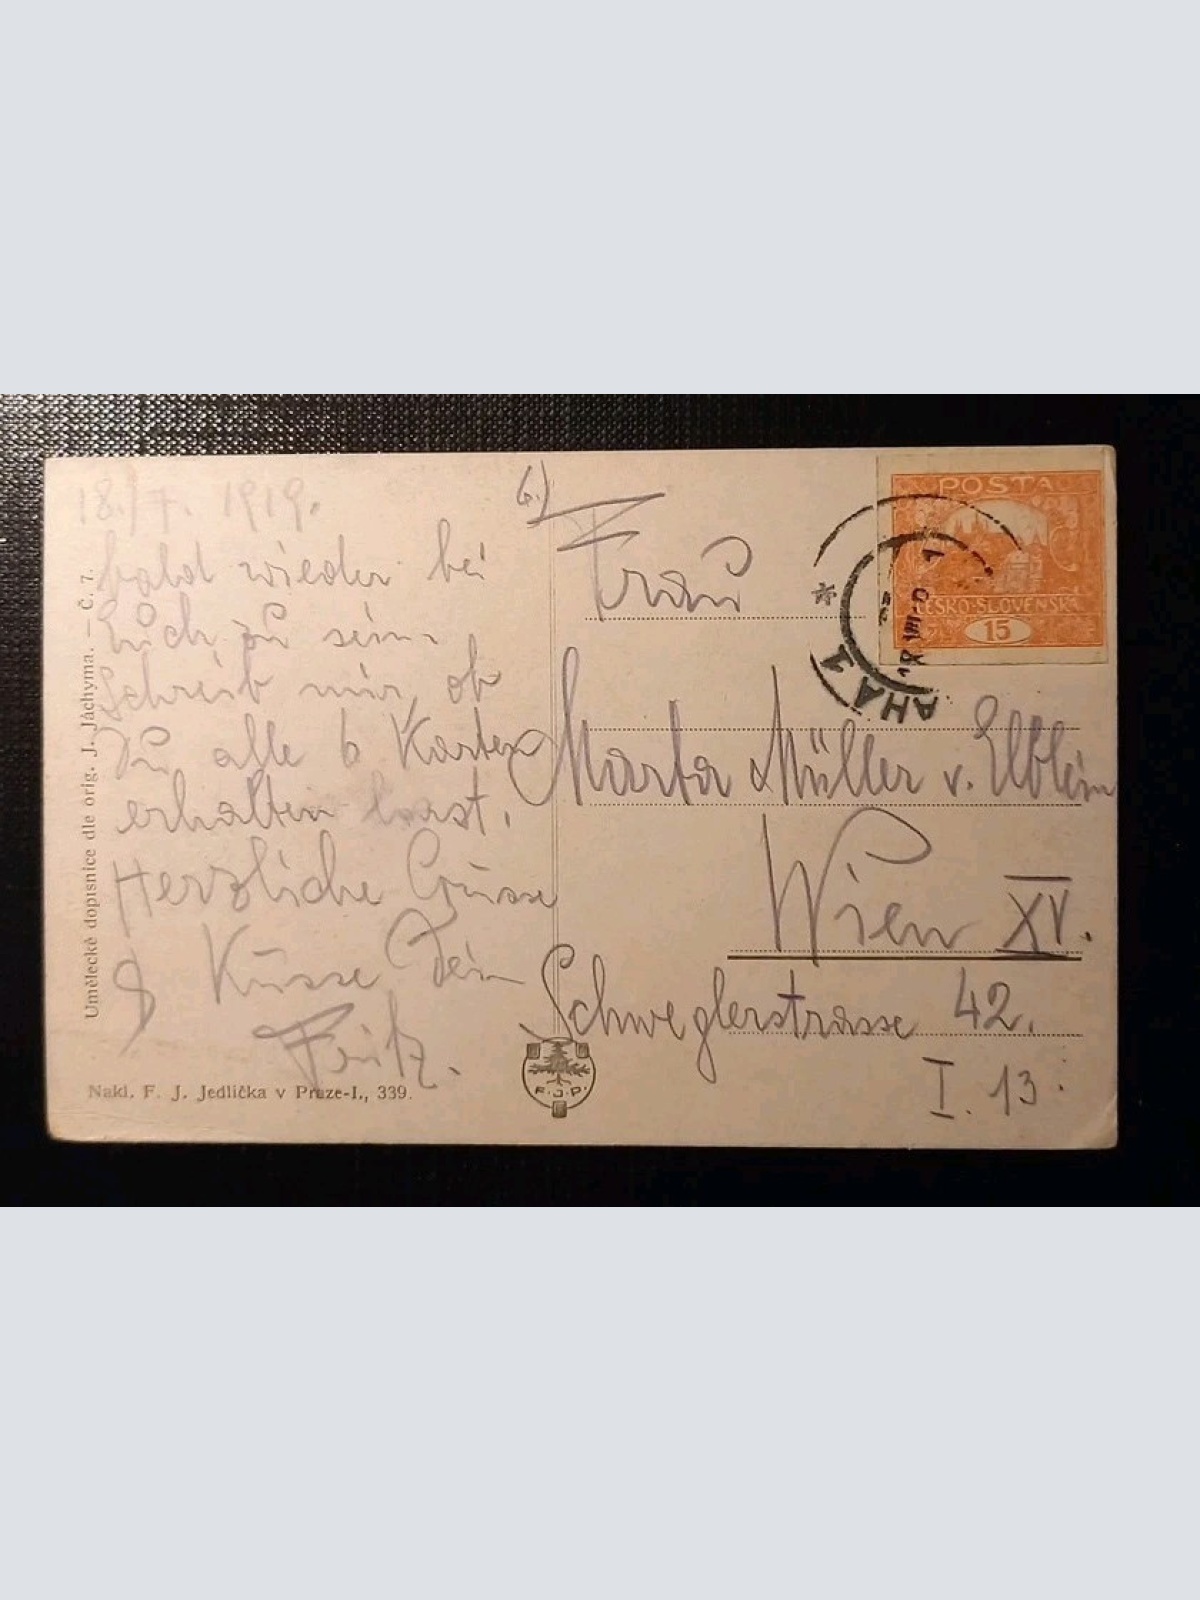 18./7. 1919.
bald wieder bei
Euch zu sein.
Schreib mir, ob
Du alle 6 Karten
erhalten hast.
Herzliche Grüsse
& Küsse Dein
Fritz.
6.)
Frau
Marta Müller v.
Wien XV.
Schweglerstrasse 42.
I. 13.
POSTA
ČESKO-SLOVENSKÁ
15
AHA 1
18 VII 19
Umělecké dopisnice dle orig. J. Jáchyma. – Č. 7.
Nakl. F. J. Jedlička v Praze-I., 339.
F. J. P.